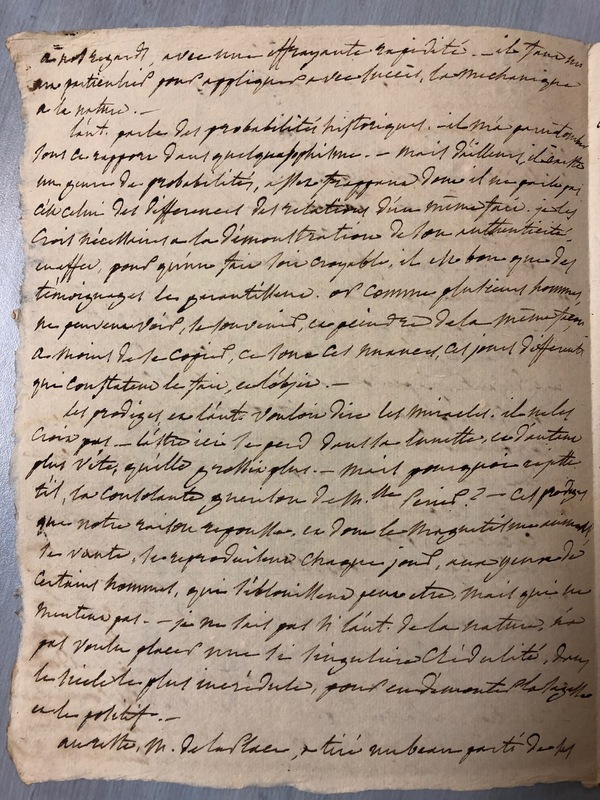 a nos regards, avec une effrayante rapidité. – il faut un
un particulier pour appliquer avec succès, la mechanique
a la nature. –
l'aut. parle des probabilités historiques. – il m'a paru tomber
sous ce rapport dans quelque sophisme. – mais d'ailleurs il
un genre de probabilités, assez frappant dont il ne parle pas
c'est celui des differences des relations d'un même fait. je les
crois nécessaires a la démonstration de son authenticité
en effet, pour qu'un fait soit croyable, il est bon que des
témoignages le garantissent. or comme plusieurs hommes,
ne peuvent voir, se souvenir, et peindre de la même façon
a moins de se copier, ce sont ces nuances, ces jours differents
que constatent le fait, et l'objet. –
les prodiges et l'aut. vouloit dire les miracles. il ne les
croit pas – l'astre ici se perd dans sa lunette, et d'autant
plus vite, qu'elle grossit plus. – mais pourquoi rejette
t'il, la consolante guerison de Mlle Perier? – ces prodiges
que notre raison repousse, et dont le magnetisme animal,
se vante, se reproduisent chaque jour, aux yeux de
certains hommes, qui s'éblouissent peut etre, mais qui ne
mentent pas. – je ne sais pas si l'aut. de la nature, n'a
pas voulu placer une si singuliere crédulité, dans
le siecle le plus incrédule, pour en démontrer la sagesse
et le positif. –
au reste, M. de la Place, a tiré un beau parti de ses